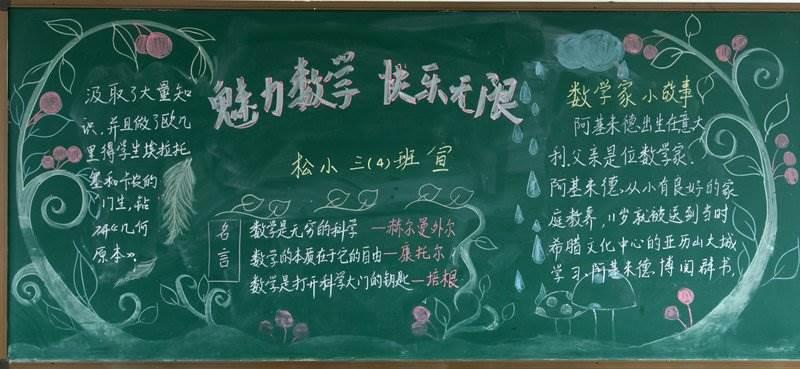 魅力数学 快乐无限
松小三(4)班宣
名言
数学是无穷的科学—赫尔曼外尔
数学的本质在于它的自由—康托尔
数学是打开科学大门的钥匙—培根
数学家小故事
阿基米德出生在意大
利.父亲是位数学家.
阿基米德,从小有良好的家
庭教养,11岁就被送到当时
希腊文化中心的亚历山大城
学习.阿基米德.博闻群书,
汲取了大量知
识,并且做了欧几
里得学生埃拉托
塞和卡农的
门生,钻
研《几何
原本》.